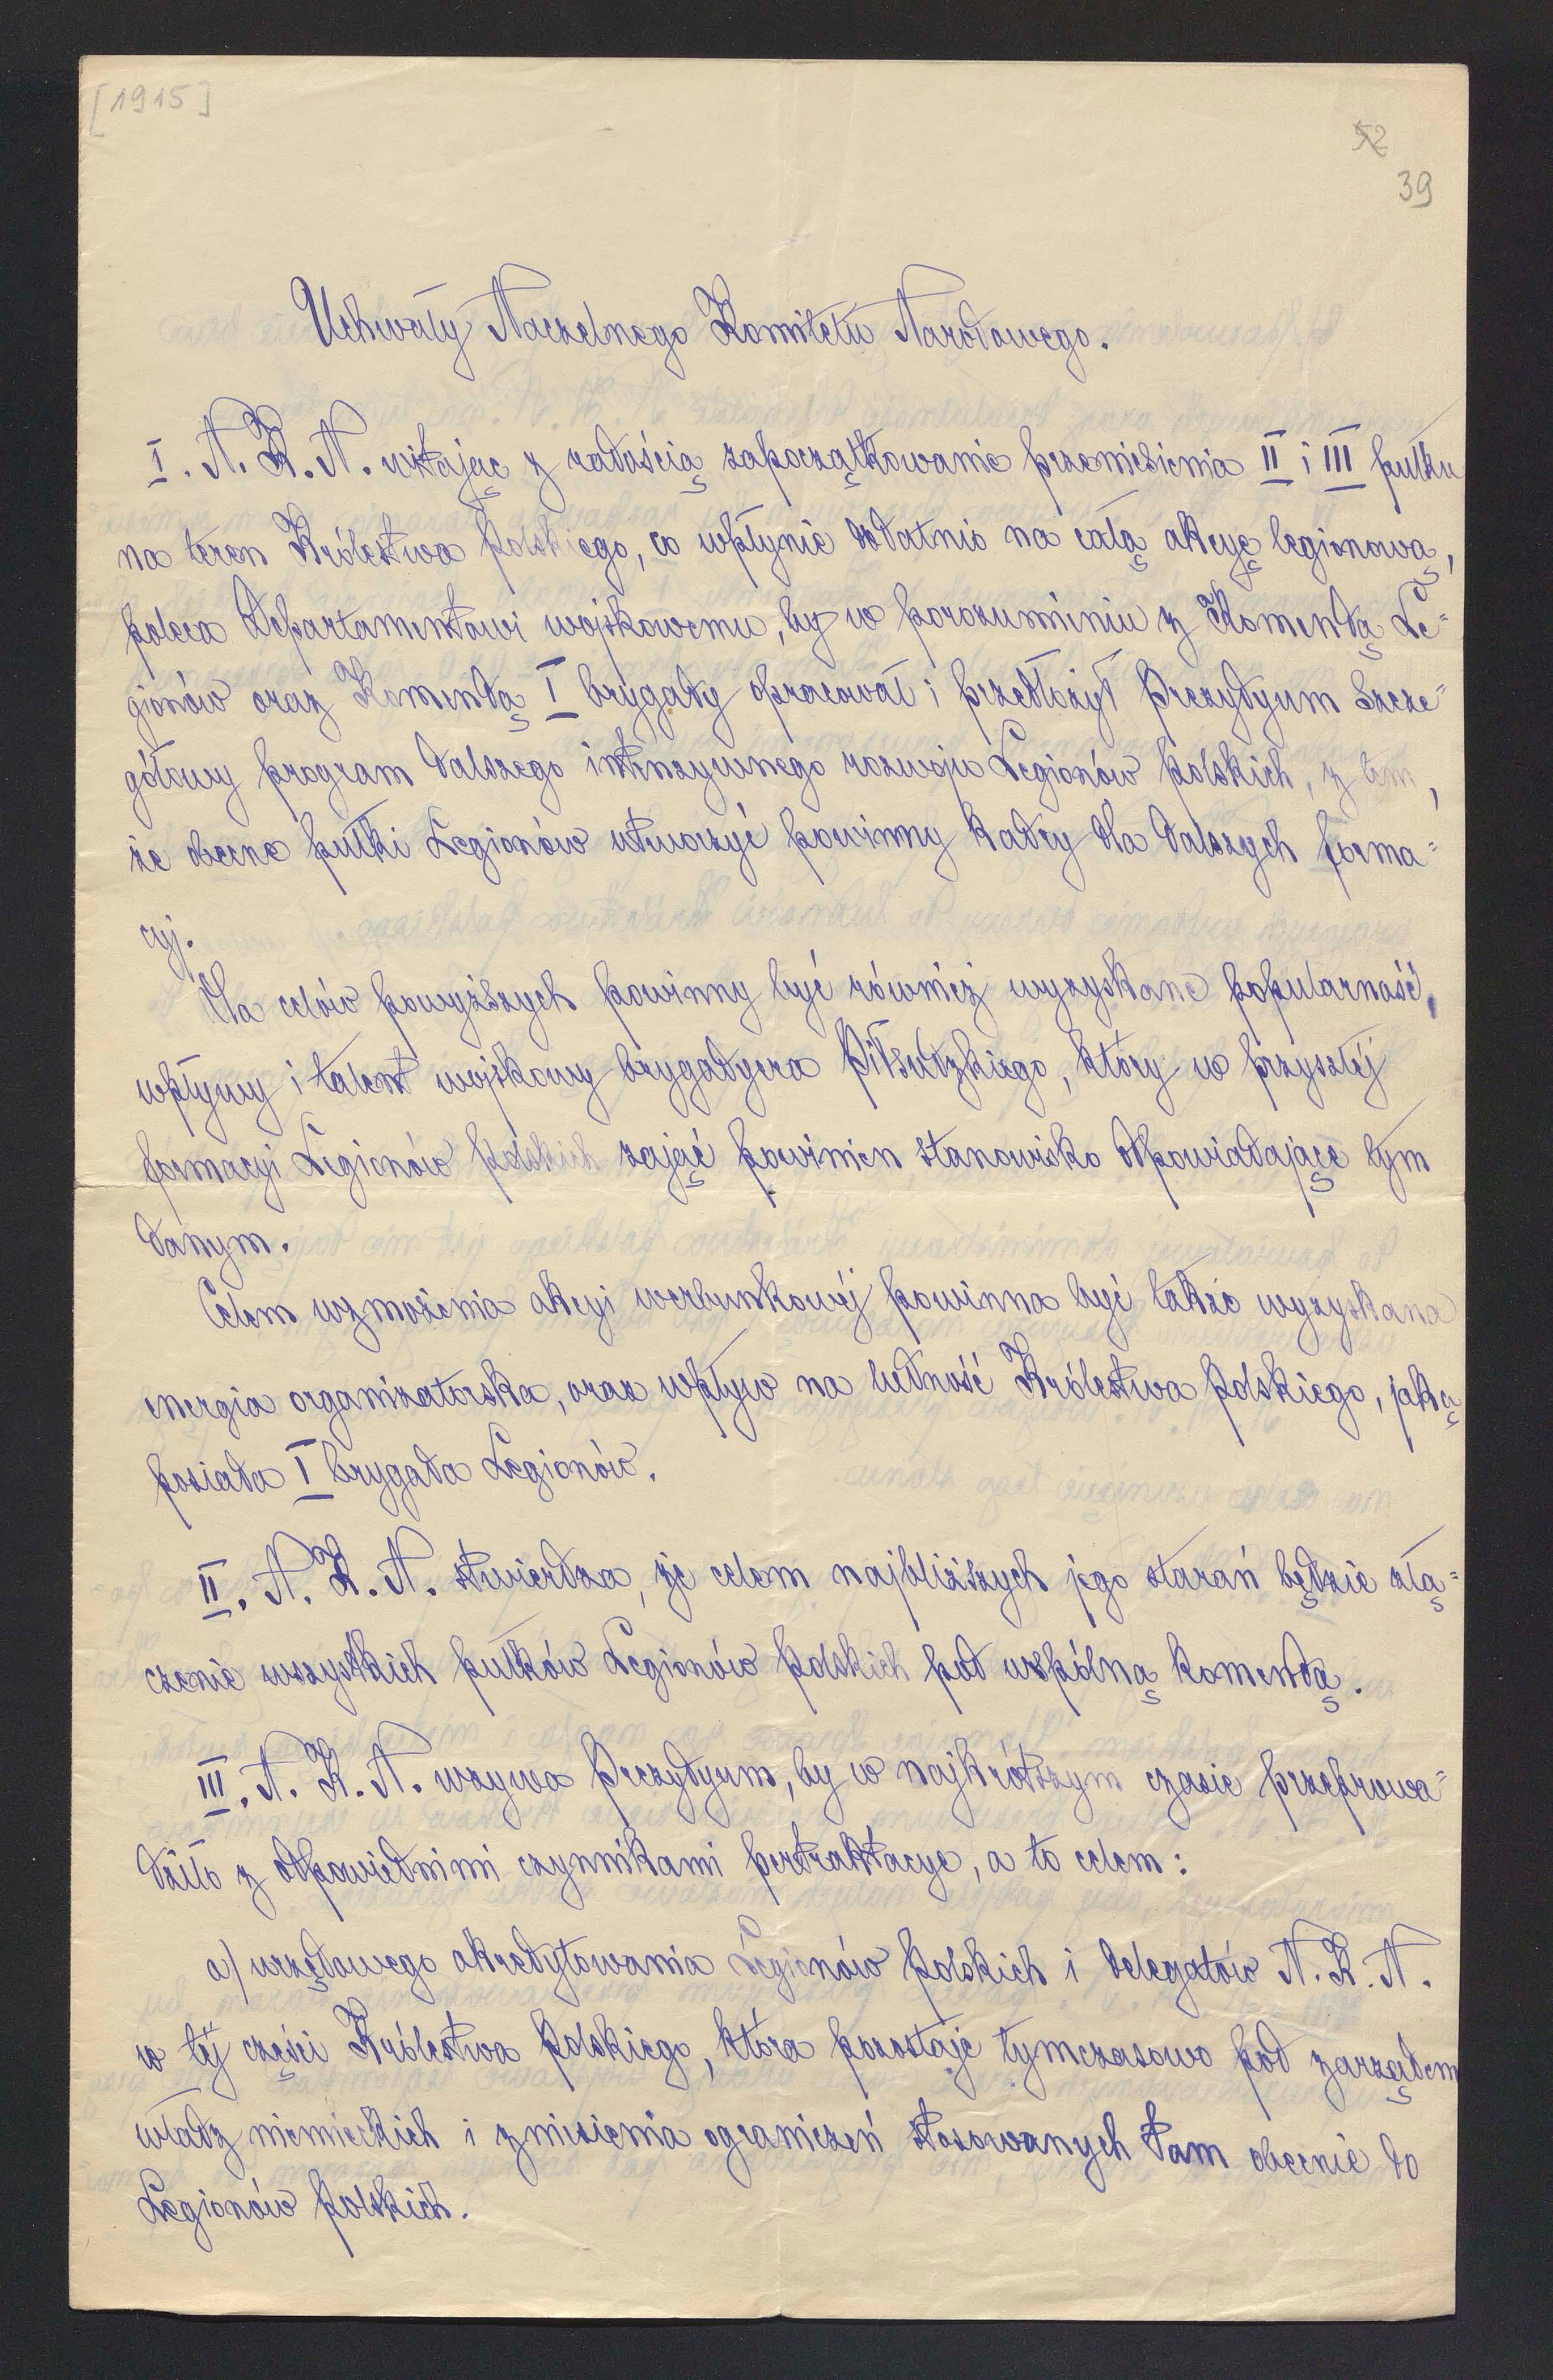 [1915]
52
39
Uchwały Naczelnego Komitetu Narodowego.
I. N. K. N. witając z radością zapoczątkowanie przeniesienia II i III pułku
na teren Królestwa Polskiego, co wpłynie dodatnio na całą akcyę legionową,
poleca Departamentowi wojskowemu, by w porozumieniu z Komendą Le=
gionów oraz Komendą I brygady opracował i przedłożył Prezydyum szcze=
gółowy program dalszego intenzywnego rozwoju Legionów Polskich, z tem,
że obecne pułki Legionów utworzyć powinny kadry dla dalszych forma=
cyj.
Dla celów powyższych powinny być również wyzyskane popularność,
wpływy i talent wojskowy brygadyera Piłsudzkiego, który w przyszłej
formacyi Legionów Polskich zająć powinien stanowisko odpowiadające tym
danym.
Celem wzmożenia akcyi werbunkowej powinna być także wyzyskana
energia organizatorska, oraz wpływ na ludność Królestwa Polskiego, jaką
posiada I brygada Legionów.
II. N. K. N. stwierdza, że celem najbliższych jego starań będzie złą=
czenie wszystkich pułków Legionów Polskich pod wspólną komendą.
III. N. K. N. wzywa Prezydyum, by w najkrótszym czasie przeprowa=
dziło z odpowiednimi czynnikami pertraktacye, a to celem:
a) urzędowego akredytowania Legionów Polskich i delegatów N. K. N.
w tej części Królestwa Polskiego, która pozostaje tymczasowo pod zarządem
władz niemieckich i zniesienia ograniczeń stosowanych tam obecnie do
Legionów Polskich.